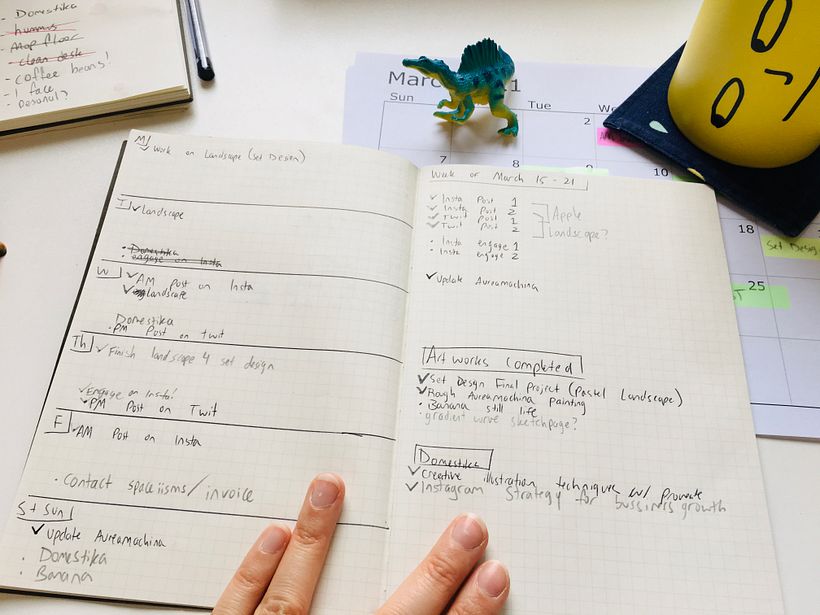 - Domestika
- hummus
- Mop floor
- clean desk
- coffee beans!
- 1 face
- Personal?
March
21
Sun
Tue
We
2
7
8
9
10
18
Set Design
25
ST
M
✓ Work on Landscape (Set Design)
T
✓ Landscape
• Domestika
• engage on Insta
W
✓ AM Post on Insta
✓ Landscape
Domestika
• PM Post on twit
Th
✓ Finish landscape 4 set design
✓ Engage on Insta!
✓ PM Post on Twit
F
✓ AM Post on Insta
• Contact spaceiisms/invoice
S + Sun
✓ Update Aureamachina
• Domestika
• Banana
Week of March 15-21
✓ Insta Post 1
✓ Insta Post 2
✓ Twit Post 1
✓ Twit Post 2
Apple
Landscape?
• Insta engage 1
• Insta engage 2
✓ Update Aureamachina
Art works Completed
✓ Set Design Final Project (Pastel Landscape)
✓ Rough Aureamachina painting
• Banana still life
• gradient curve sketchpage?
Domestika
✓ creative illustration techniques w/ Procreate
✓ Instagram Strategy for bussiners growth